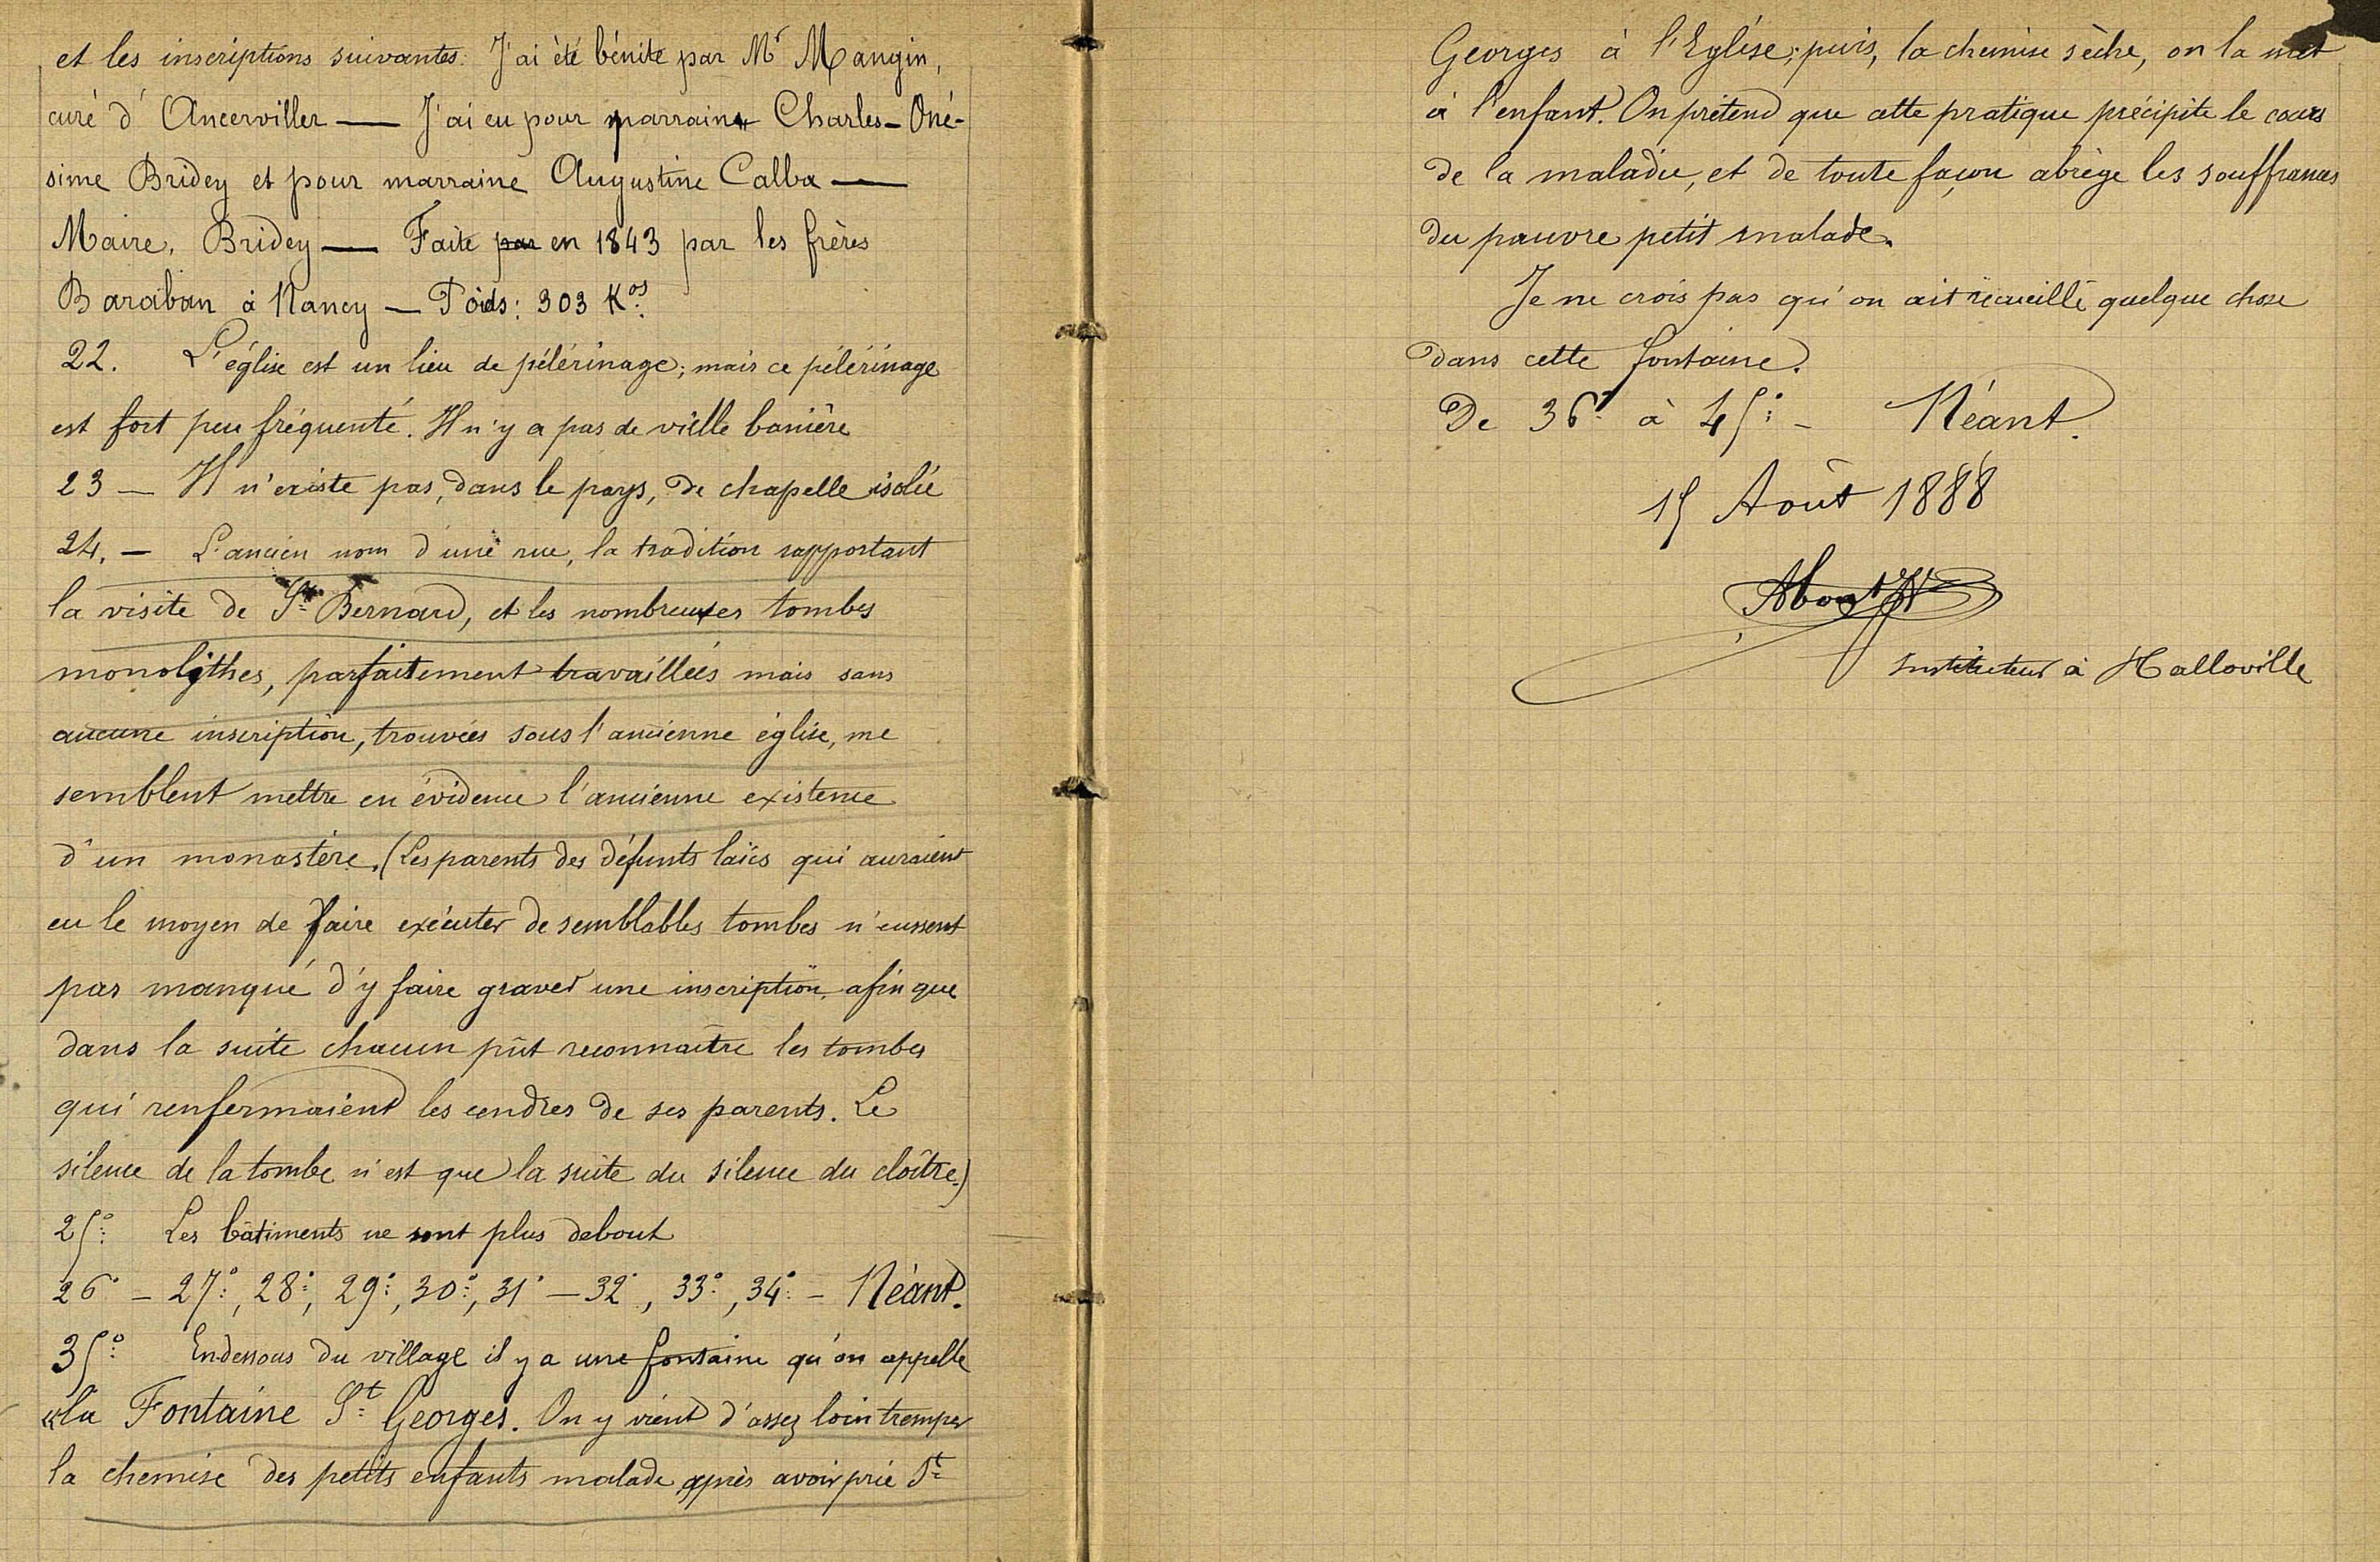 et les inscriptions suivantes: J'ai été bénite par Mr Mangin,
curé d'Ancerviller — J'ai eu pour parrain Charles-Oné-
sime Bridey et pour marraine Augustine Calba —
Maire, Bridey — Faite par en 1843 par les frères
Baraban à Nancy — Poids: 303 Kos
22. L'église est un lieu de pélérinage; mais ce pélérinage
est fort peu fréquenté. Il n'y a pas de vielle banière
23 — Il n'existe pas, dans le pays, de chapelle isolée
24. — L'ancien nom d'une rue, la tradition rapportant
la visite de St Bernard, et les nombreuses tombes
monolithes, parfaitement travaillées mais sans
aucune inscription, trouvées sous l'ancienne église, me
semblent mettre en évidence l'ancienne existence
d'un monastère. (Les parents des défunts laïcs qui auraient
eu le moyen de faire exécuter de semblables tombes n'eussent
pas manqué d'y faire graver une inscription, afin que
dans la suite chacun pût reconnaître les tombes
qui renfermaient les cendres de ses parents. Le
silence de la tombe n'est que la suite du silence du cloître.)
25° Les bâtiments ne sont plus debout
26° — 27°, 28°, 29°, 30°, 31° — 32°, 33°, 34° — Néant.
35° En dessous du village il y a une fontaine qu'on appelle
«la Fontaine St Georges. On y vient d'assez loin tremper
la chemise des petits enfants malade, après avoir prié St
Georges à l'Eglise; puis, la chemise sèche, on la met
à l'enfant. On prétend que cette pratique précipite le cours
de la maladie, et de toute façon abrège les souffrances
du pauvre petit malade.
Je ne crois pas qu'on ait recueilli quelque chose
dans cette fontaine.
De 36° à 45° — Néant.
15 Août 1888
Instituteur à Halloville